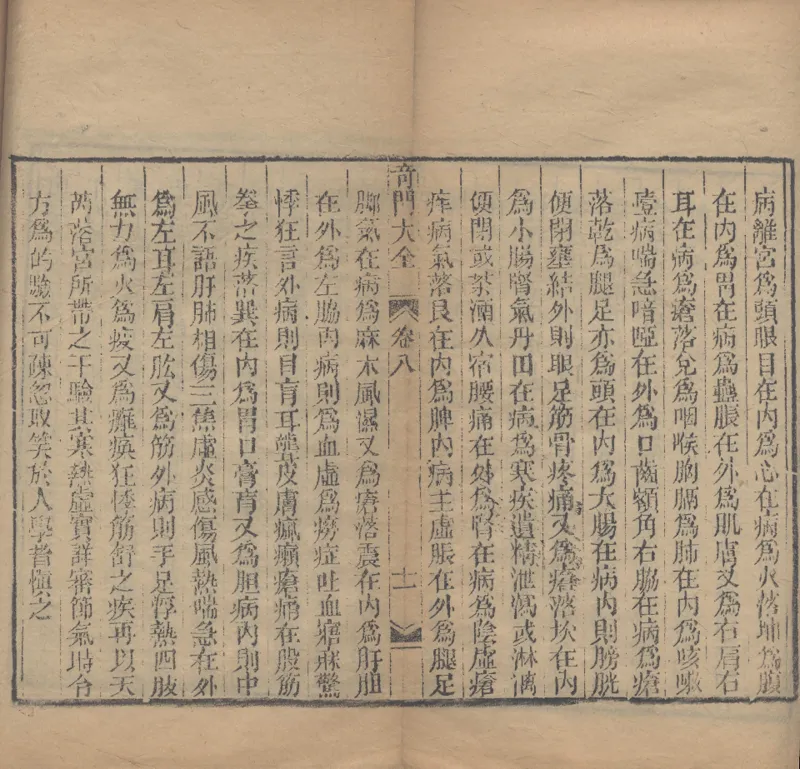 病離宮爲頭眼目在内爲心在病爲火落坤爲腹
在内爲胃在病爲蠱脹在外爲肌膚又爲右肩右
耳在病爲瘡落兌爲咽喉胸膈爲肺在内爲咳嗽
壹病喘急喑啞在外爲口齒額角右脇在病爲瘡
落乾爲腿足亦爲頭在内爲大腸在病内則膀胱
便閉壅結外則眼足筋骨疼痛又爲瘡落坎在内
爲小腸腎氣丹田在病爲寒疾遺精泄瀉或淋漓
便閉或茶酒久宿腰痛在外爲腎在病爲陰虛瘡
痒病氣落艮在内爲脾内病主虛脹在外爲腿足
奇門大全 卷八 十一
脚氣在病爲麻木風濕又爲瘡落震在内爲肝胆
在外爲左脇肉病則爲血虛爲癆症吐血寤寐驚
悸狂言外病則目肓耳聾皮膚瘋癩瘡癤在股筋
拳之疾落巽在内爲胃口膏肓又爲胆病内則中
風不語肝肺相傷三焦虛炎感傷風熱喘急在外
爲左耳左肩左肱又爲筋外病則手足浮熱四肢
無力爲火爲疫又爲癱瘓狂悸筋舒之疾再以天
芮落宮所帶之干驗其寒熱虛實詳審節氣時令
方爲的驗不可疎忽取笑於人學者愼之